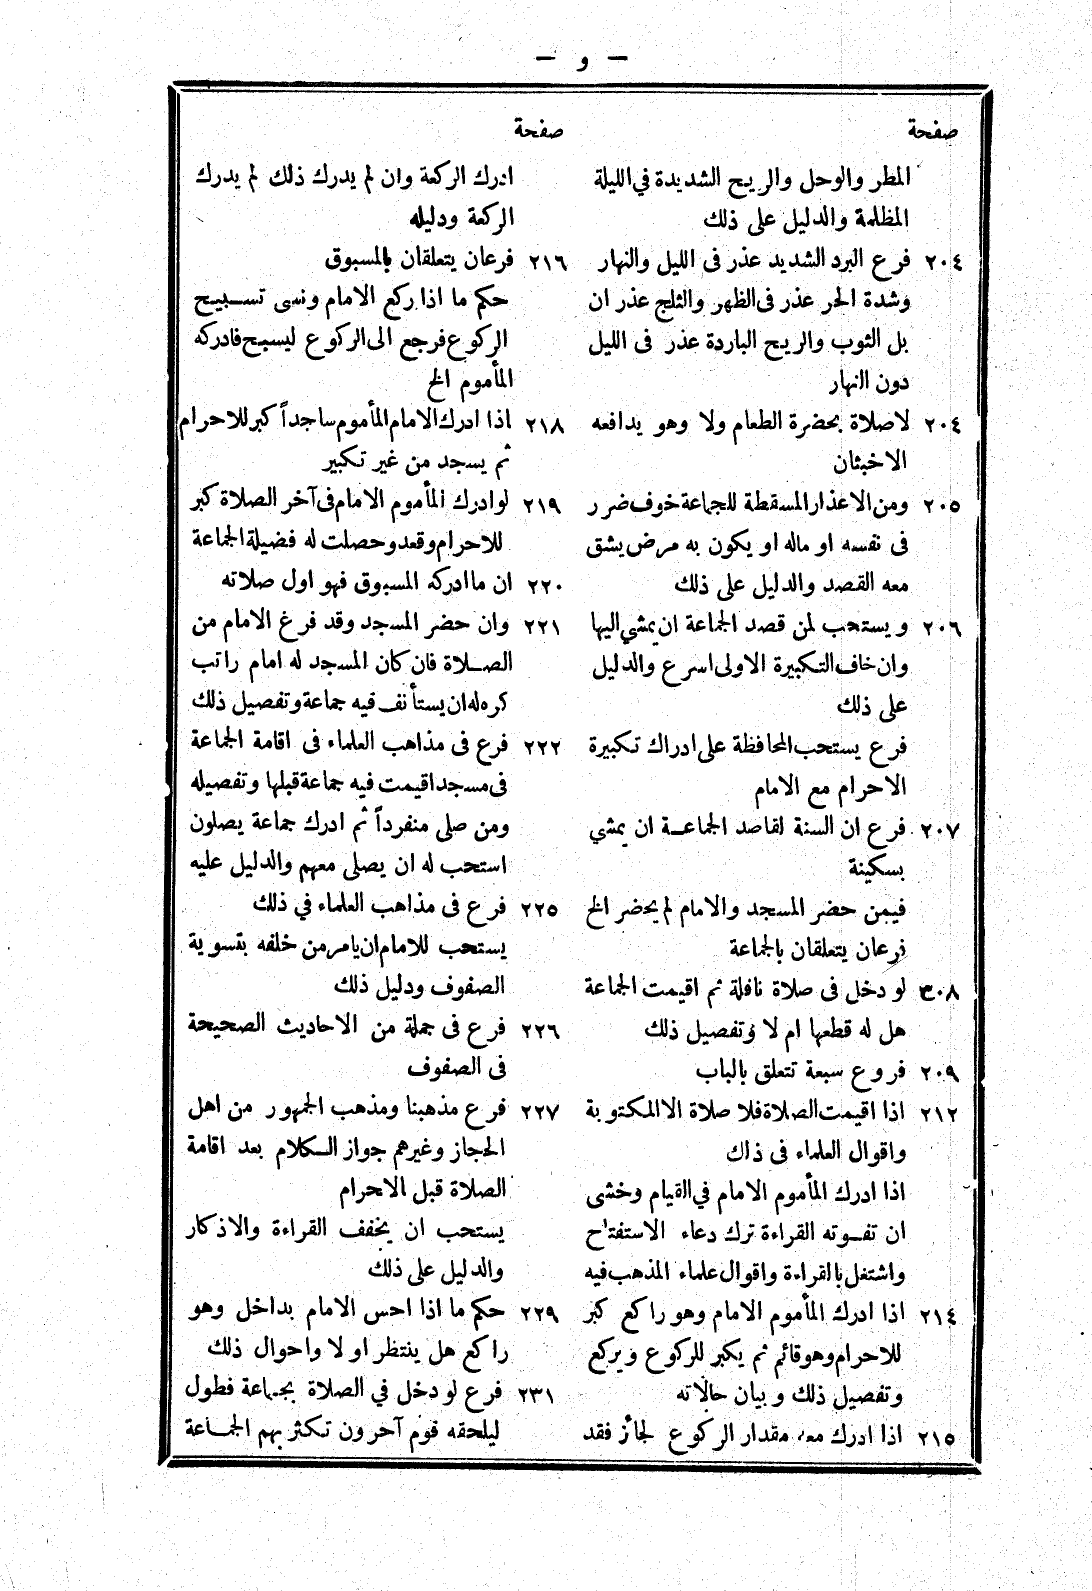 — و —
صفحة
المطر والوحل والريح الشديدة في الليلة
المظلمة والدليل على ذلك
٢٠٤ فرع البرد الشديد عذر فى الليل والنهار
وشدة الحر عذر فى الظهر والثلج عذر ان
بل الثوب والريح الباردة عذر فى الليل
دون النهار
٢٠٤ لاصلاة بحضرة الطعام ولا وهو يدافعه
الاخبثان
٢٠٥ ومن الاعذار المسقطة للجماعة خوف ضرر
فى نفسه او ماله او يكون به مرض يشق
معه القصد والدليل على ذلك
٢٠٦ ويستحب لمن قصد الجماعة ان يمشي اليها
وان خاف التكبيرة الاولى اسرع والدليل
على ذلك
فرع يستحب المحافظة على ادراك تكبيرة
الاحرام مع الامام
٢٠٧ فرع ان السنة لقاصد الجماعة ان يمشي
بسكينة
فيمن حضر المسجد والامام لم يحضر الخ
فرعان يتعلقان بالجماعة
٣٠٨ لو دخل فى صلاة نافلة ثم اقيمت الجماعة
هل له قطعها ام لا وتفصيل ذلك
٢٠٩ فروع سبعة تتعلق بالباب
٢١٢ اذا اقيمت الصلاة فلا صلاة الا المكتوبة
واقوال العلماء فى ذاك
اذا ادرك المأموم الامام في القيام وخشى
ان تفوته القراءة ترك دعاء الاستفتاح
واشتغل بالقراءة واقوال علماء المذهب فيه
٢١٤ اذا ادرك المأموم الامام وهو راكع كبر
للاحرام وهو قائم ثم يكبر للركوع ويركع
وتفصيل ذلك وبيان حالاته
٢١٥ اذا ادرك معه مقدار الركوع لجائز فقد
صفحة
ادرك الركعة وان لم يدرك ذلك لم يدرك
الركعة ودليله
٢١٦ فرعان يتعلقان بالمسبوق
حكم ما اذا ركع الامام ونسى تسبيح
الركوع فرجع الى الركوع ليسبح فادركه
المأموم الخ
٢١٨ اذا ادرك الامام المأموم ساجداً كبر للاحرام
ثم يسجد من غير تكبير
٢١٩ لو ادرك المأموم الامام فى آخر الصلاة كبر
للاحرام وقعد وحصلت له فضيلة الجماعة
٢٢٠ ان ما ادركه المسبوق فهو اول صلاته
٢٢١ وان حضر المسجد وقد فرغ الامام من
الصلاة فان كان المسجد له امام راتب
كره له ان يستأنف فيه جماعة وتفصيل ذلك
٢٢٢ فرع فى مذاهب العلماء فى اقامة الجماعة
فى مسجد اقيمت فيه جماعة قبلها وتفصيله
ومن صلى منفرداً ثم ادرك جماعة يصلون
استحب له ان يصلى معهم والدليل عليه
٢٢٥ فرع فى مذاهب العلماء في ذلك
يستحب للامام ان يامر من خلفه بتسوية
الصفوف ودليل ذلك
٢٢٦ فرع فى جملة من الاحاديث الصحيحة
فى الصفوف
٢٢٧ فرع مذهبنا ومذهب الجمهور من اهل
الحجاز وغيرهم جواز الكلام بعد اقامة
الصلاة قبل الاحرام
يستحب ان يخفف القراءة والاذكار
والدليل على ذلك
٢٢٩ حكم ما اذا احس الامام بداخل وهو
راكع هل ينتظر او لا واحوال ذلك
٢٣١ فرع لو دخل في الصلاة بجماعة فطول
ليلحقه قوم آخرون تكثر بهم الجماعة